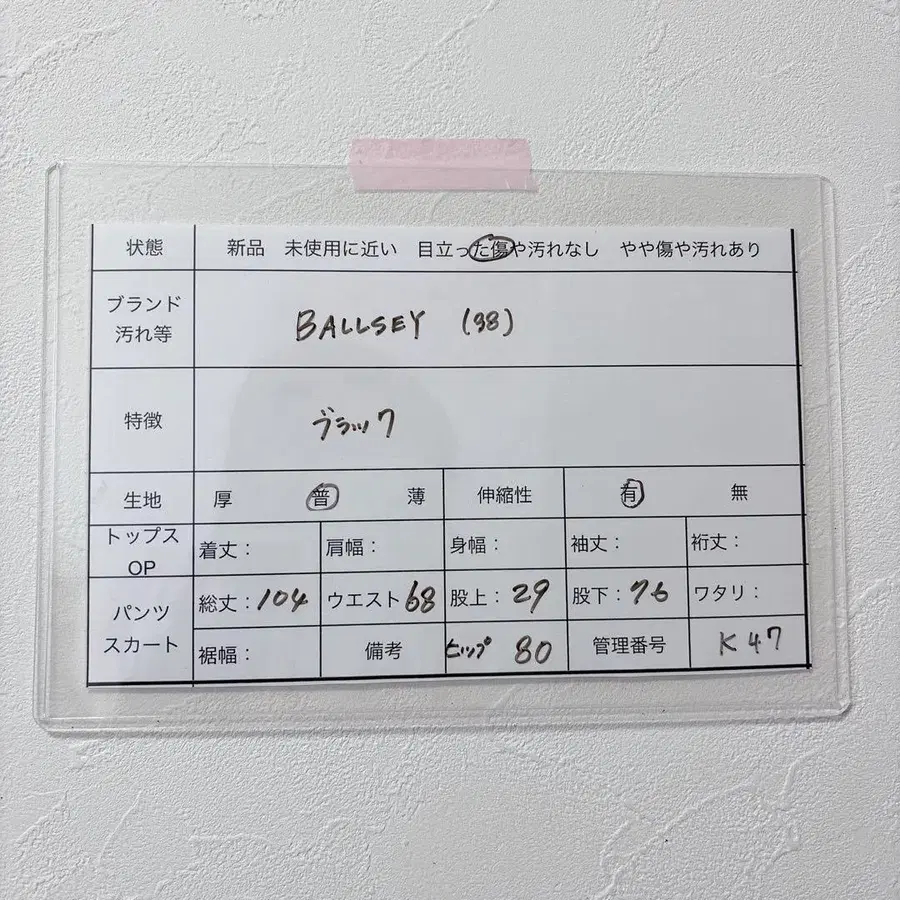 状態 新品 未使用に近い 目立った傷や汚れなし やや傷や汚れあり
ブランド
汚れ等
BALLSEY (38)
特徴 ブラック
生地 厚 普 薄 伸縮性 有 無
トップス
OP
着丈: 肩幅: 身幅: 袖丈: 裄丈:
パンツ
スカート
総丈:104 ウエスト68 股上:29 股下:76 ワタリ:
裾幅: 備考 ヒップ 80 管理番号 K47